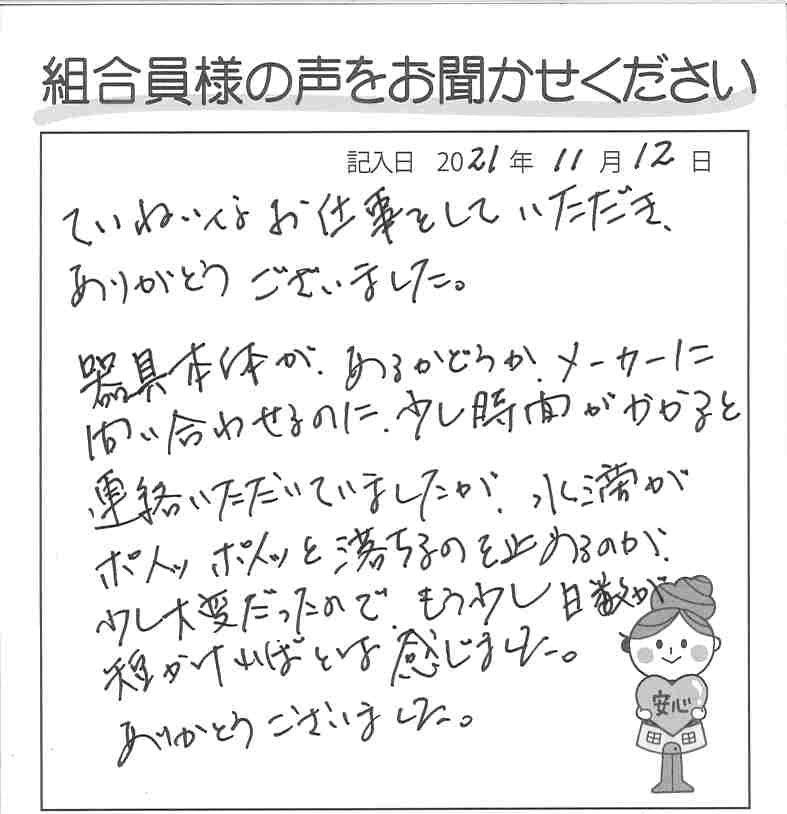 組合員様の声をお聞かせください
記入日 2021年 11月12日
ていねいなお仕事をしていただき、
ありがとうございました。
器具本体が、あるかどうか、メーカーに
問い合わせるのに、少し時間がかかると
連絡いただいていましたが、水滴が
ポトッ ポトッと落ちるのを止めるのが、
少し大変だったので、もう少し日数が
短かければとは感じました。
ありがとうございました。
安心